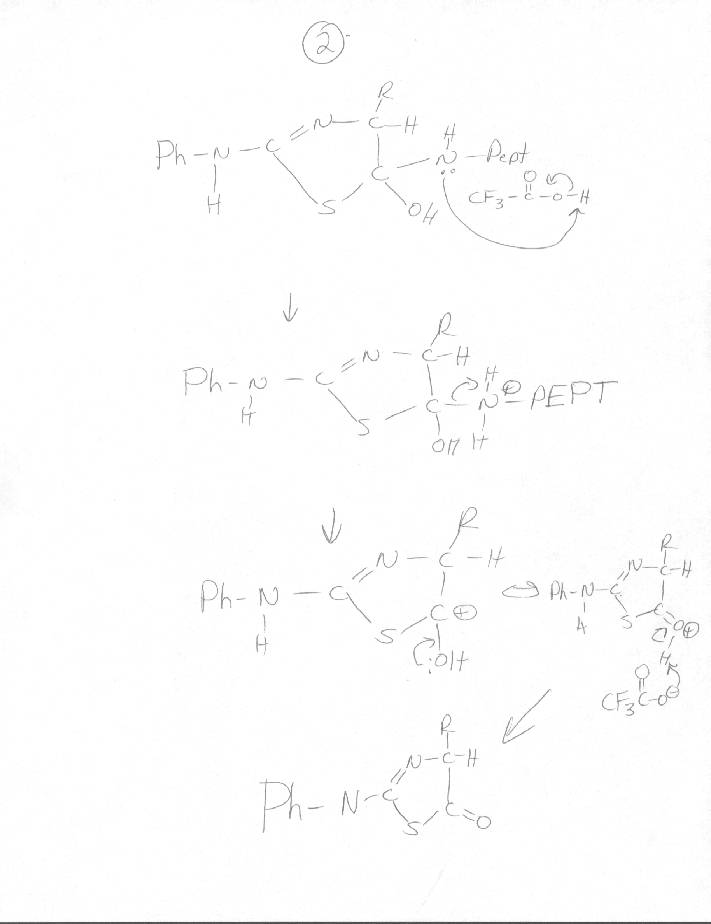 2
R
N C-H H
Ph-N-C N-Pept
O
H S OH CF3-C-O-H
R
N-C-H
Ph-N-C H ⊕
C-N-PEPT
H S OH H
R
N-C-H R
N-C-H
Ph-N-C C⊕ ⇔ Ph-N-C C
S S O⊕
H :OH H H
O
CF3C-O⊖
R
N-C-H
Ph-N-C
C=O
S